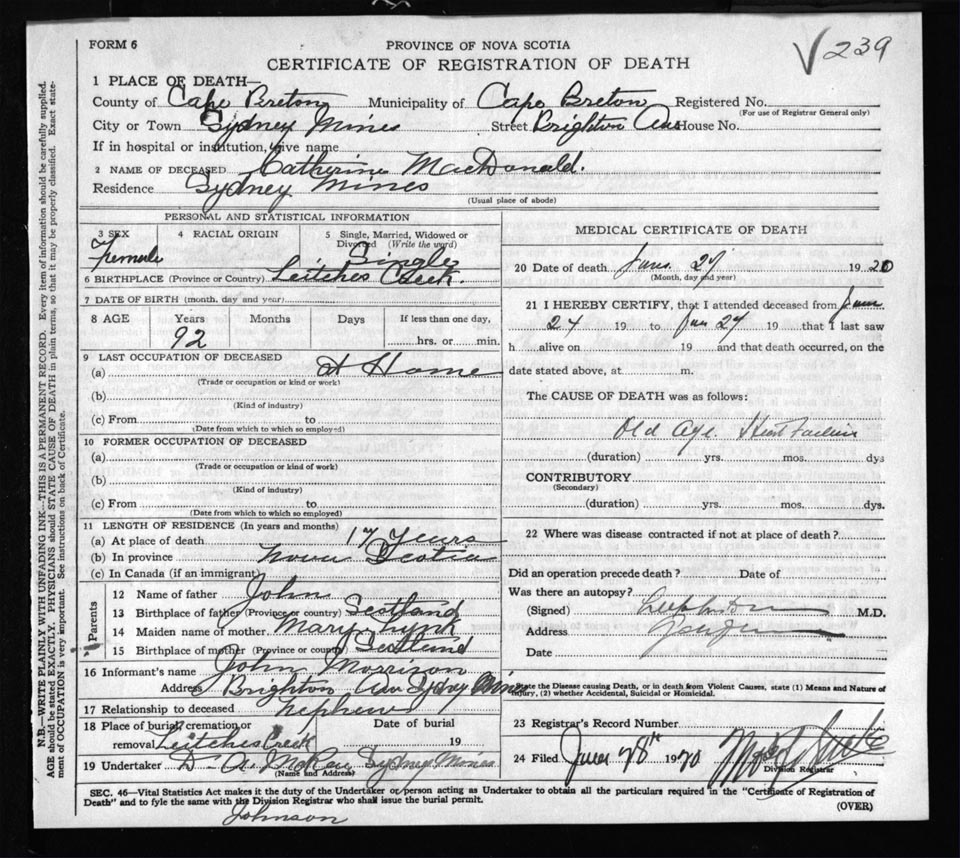 FORM 6
PROVINCE OF NOVA SCOTIA
CERTIFICATE OF REGISTRATION OF DEATH
√239
1 PLACE OF DEATH—
County of Cape Breton Municipality of Cape Breton Registered No.
(For use of Registrar General only)
City or Town Sydney Mines Street Brighton Ave House No.
If in hospital or institution, give name
2 NAME OF DECEASED Catherine MacDonald.
Residence Sydney Mines
(Usual place of abode)
PERSONAL AND STATISTICAL INFORMATION
3 SEX 4 RACIAL ORIGIN 5 Single, Married, Widowed or
Divorced (Write the word)
Female Single
6 BIRTHPLACE (Province or Country) Leitches Creek.
7 DATE OF BIRTH (month, day and year)
8 AGE Years Months Days If less than one day,
92 hrs. or min.
9 LAST OCCUPATION OF DECEASED
(a) at Home
(Trade or occupation or kind or work)
(b)
(Kind of industry)
(c) From to
(Date from which to which so employed)
10 FORMER OCCUPATION OF DECEASED
(a)
(Trade or occupation or kind of work)
(b)
(Kind of industry)
(c) From to
(Date from which to which so employed)
11 LENGTH OF RESIDENCE (In years and months)
(a) At place of death 17 Years
(b) In province Nova Scotia
(c) In Canada (if an immigrant)
Parents
12 Name of father John
13 Birthplace of father (Province or country) Scotland
14 Maiden name of mother Mary Lynk
15 Birthplace of mother (Province or country) Scotland
16 Informant's name John Morrison
Address Brighton Ave Sydney Mines
17 Relationship to deceased nephew
18 Place of burial, cremation or Date of burial
removal Leitches Creek 19
19 Undertaker D. A. McRae Sydney Mines
(Name and Address)
MEDICAL CERTIFICATE OF DEATH
20 Date of death June 27 1920
(Month, day and year)
21 I HEREBY CERTIFY, that I attended deceased from June
24 19 to Jun 27 19 that I last saw
h alive on 19 and that death occurred, on the
date stated above, at m.
The CAUSE OF DEATH was as follows:
Old Age. Heart Failure
(duration) yrs. mos. dys
CONTRIBUTORY
(Secondary)
(duration) yrs. mos. dys.
22 Where was disease contracted if not at place of death?
Did an operation precede death? Date of
Was there an autopsy?
(Signed) M.D.
Address
Date
State the Disease causing Death, or in death from Violent Causes, state (1) Means and Nature of
Injury, (2) whether Accidental, Suicidal or Homicidal.
23 Registrar's Record Number
24 Filed June 28th 1920
Division Registrar
SEC. 46—Vital Statistics Act makes it the duty of the Undertaker or person acting as Undertaker to obtain all the particulars required in the "Certificate of Registration of
Death" and to fyle the same with the Division Registrar who shall issue the burial permit.
(OVER)
Johnson
N.B.—WRITE PLAINLY WITH UNFADING INK—THIS IS A PERMANENT RECORD. Every item of information should be carefully supplied.
AGE should be stated EXACTLY. PHYSICIANS should STATE CAUSE OF DEATH in plain terms, so that it may be properly classified. Exact state-
ment of OCCUPATION is very important. See instructions on back of Certificate.